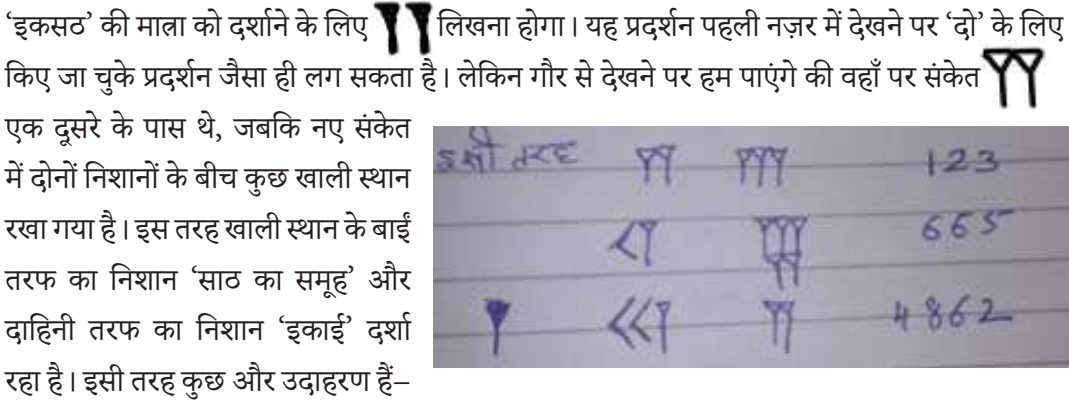 ‘इकसठ’ की मात्रा को दर्शाने के लिए लिखना होगा। यह प्रदर्शन पहली नज़र में देखने पर ‘दो’ के लिए
किए जा चुके प्रदर्शन जैसा ही लग सकता है। लेकिन गौर से देखने पर हम पाएंगे की वहाँ पर संकेत
एक दूसरे के पास थे, जबकि नए संकेत
में दोनों निशानों के बीच कुछ खाली स्थान
रखा गया है। इस तरह खाली स्थान के बाईं
तरफ का निशान ‘साठ का समूह’ और
दाहिनी तरफ का निशान ‘इकाई’ दर्शा
रहा है। इसी तरह कुछ और उदाहरण हैं–
इसी तरह 𒐖 𒐗 123
𒌋𒐕 𒐙 665
𒐕 𒌋𒌋𒐕 𒐖 4862